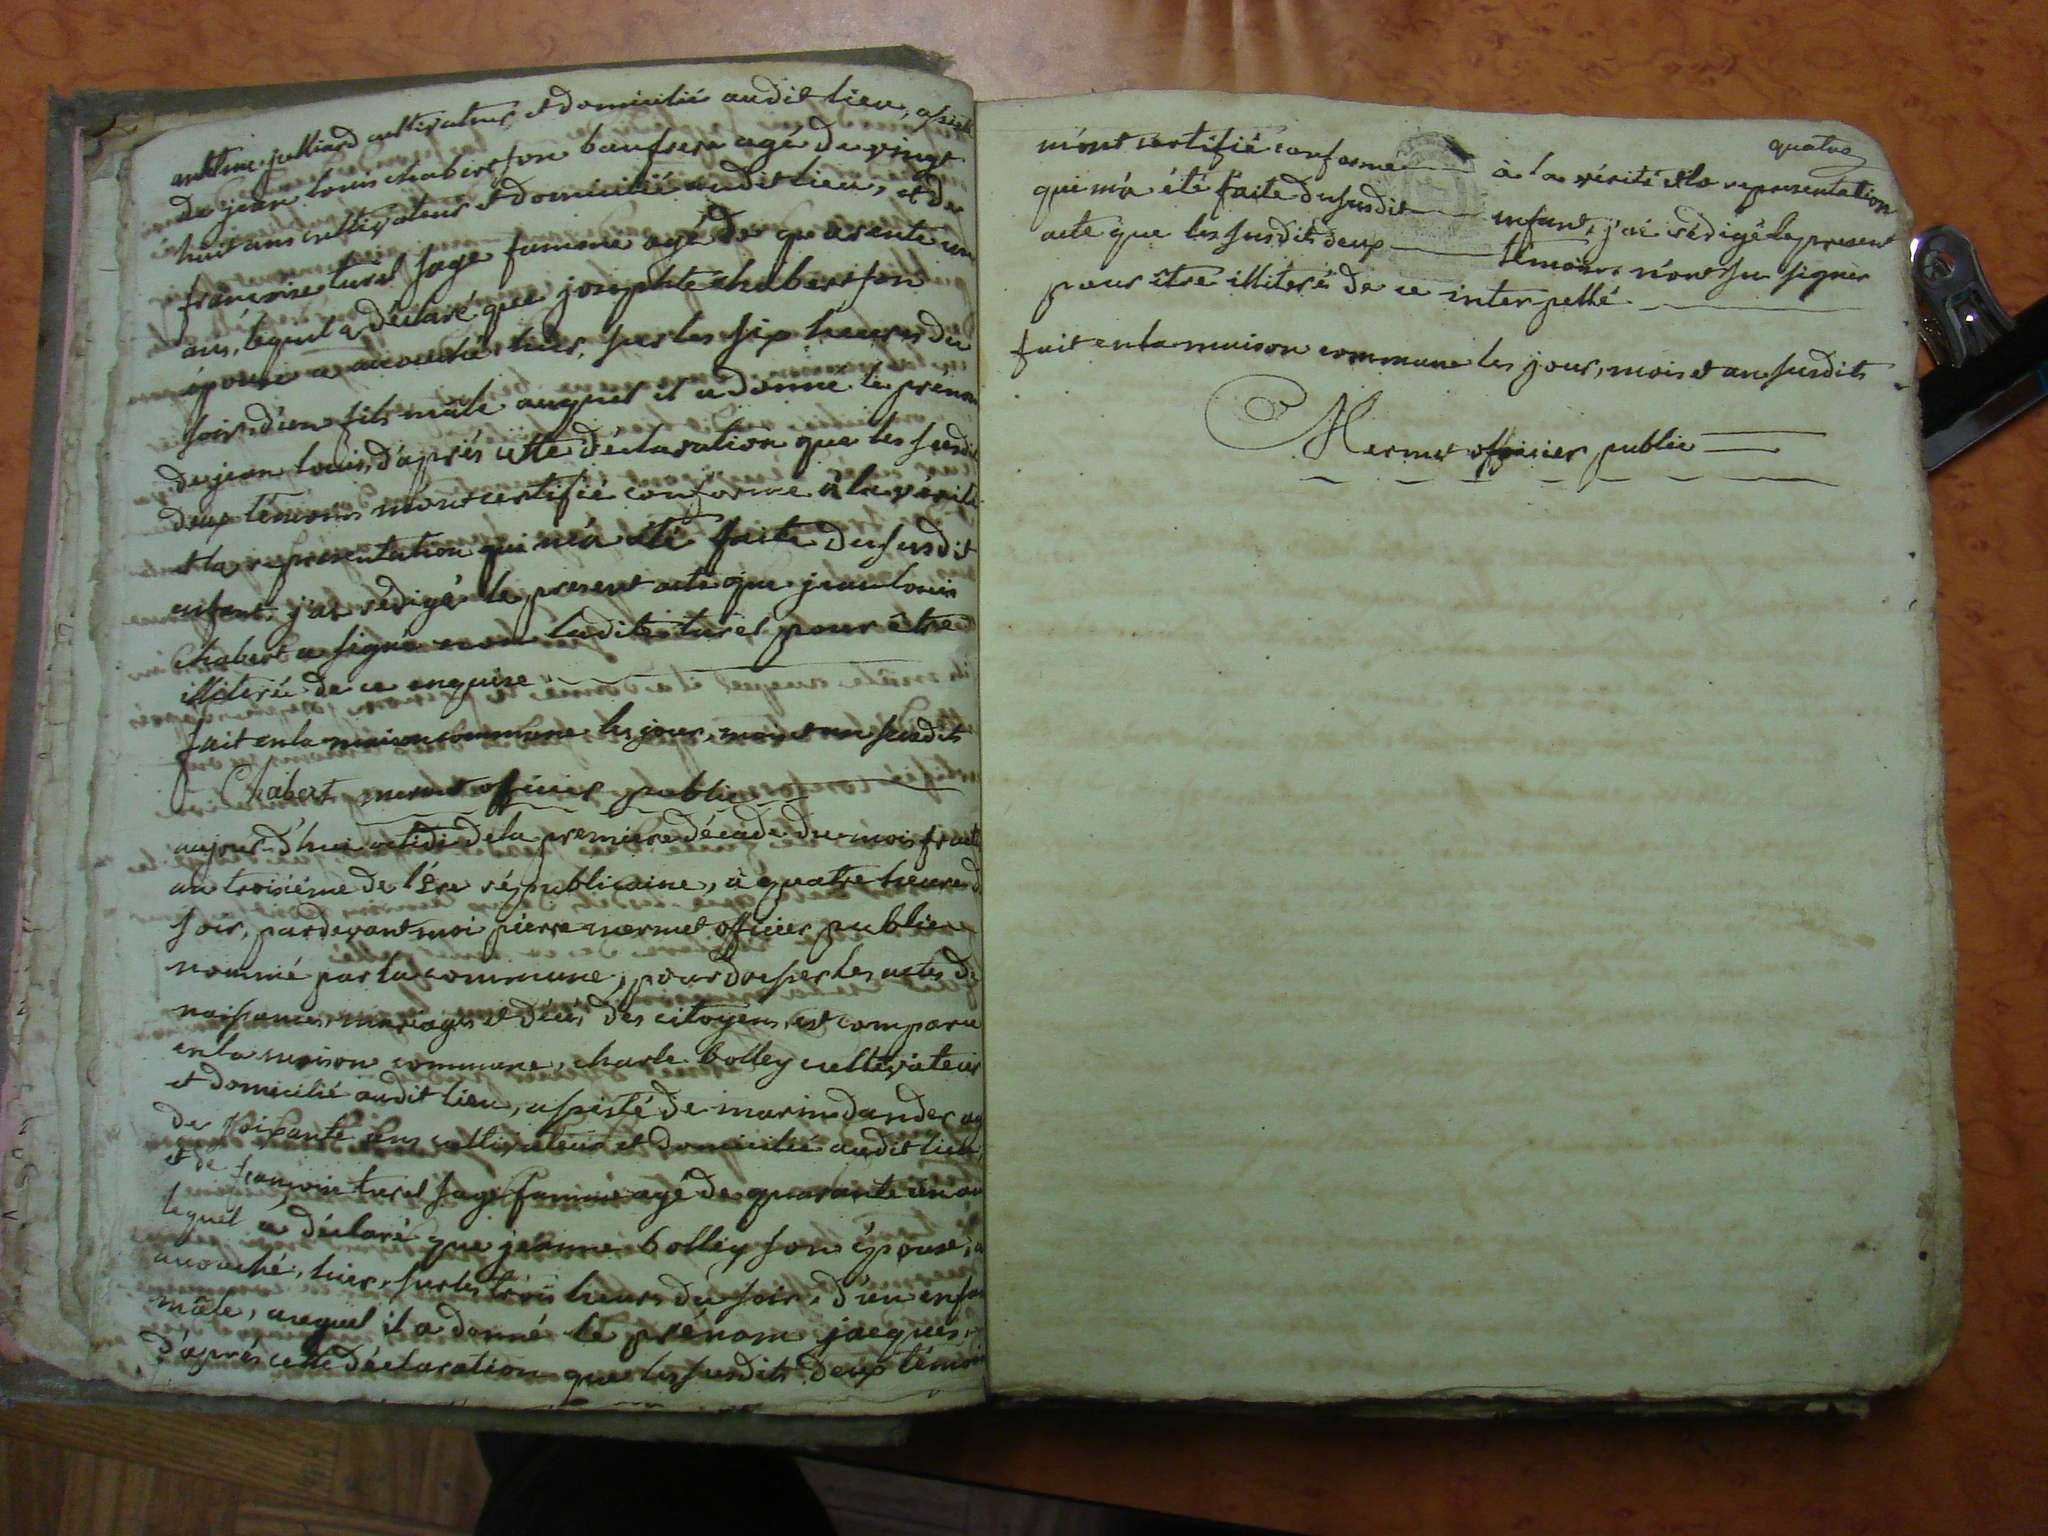 anthme julliard cultivateur et domicilié audit lieu, assisté
de jean louis chabert son baufrere agé de vingt
huit ans cultivateur et domicilié audit lieu, et de
francoise turel sage famme agé de quarente un
ans, lequel a déclaré que josephte chabert son
épouse a accouché hier, sur les six heures du
soir d'un fils mâle auquel il a donné le prenom
de jean louis, d'aprés cette déclaration que les susdit
deux témoins m'ont certifié conforme à la vérité
et la representation qui m'a été faite du susdit
enfant, j'ai rédigé le present acte que jean louis
Chabert a signé non ladite turel pour être
illiteré de ce enquise
fait en la maison commune les jour, mois et an susdits
Chabert mermet officier public
aujourd'hui octidi de la premiere décade du mois fructi
an troisiéme de l'ère républicaine, à quatre heures d
soir, pardevant moi pierre mermet officier public
nommé par la commune, pour dresser les actes de
naissances, mariages et décés des citoyens, est comparu
en la maison commune, charle bolley cultivateur
et domicilié audit lieu, assisté de marin dander ag
de soixante ans cultivateur et domicilié audit lieu,
et de francoise turel sage famme agé de quarante un an
lequel a déclaré que jeanne bolley son épouse, a
accouché, hier, sur les trois heures du soir, d'un enfan
mâle, auquel il a donné le prénom jacques,
d'aprés cette déclaration que les susdits deux témoin
quatre
m'ont certifié conforme à la vérité et la representation
qui m'a été faite du susdit enfant, j'ai rédigé le present
acte que les susdits deux témoins n'ont su signer
pour être illiteré de ce interpellé
fait en la maison commune les jour, mois et an susdits
Mermet officier public